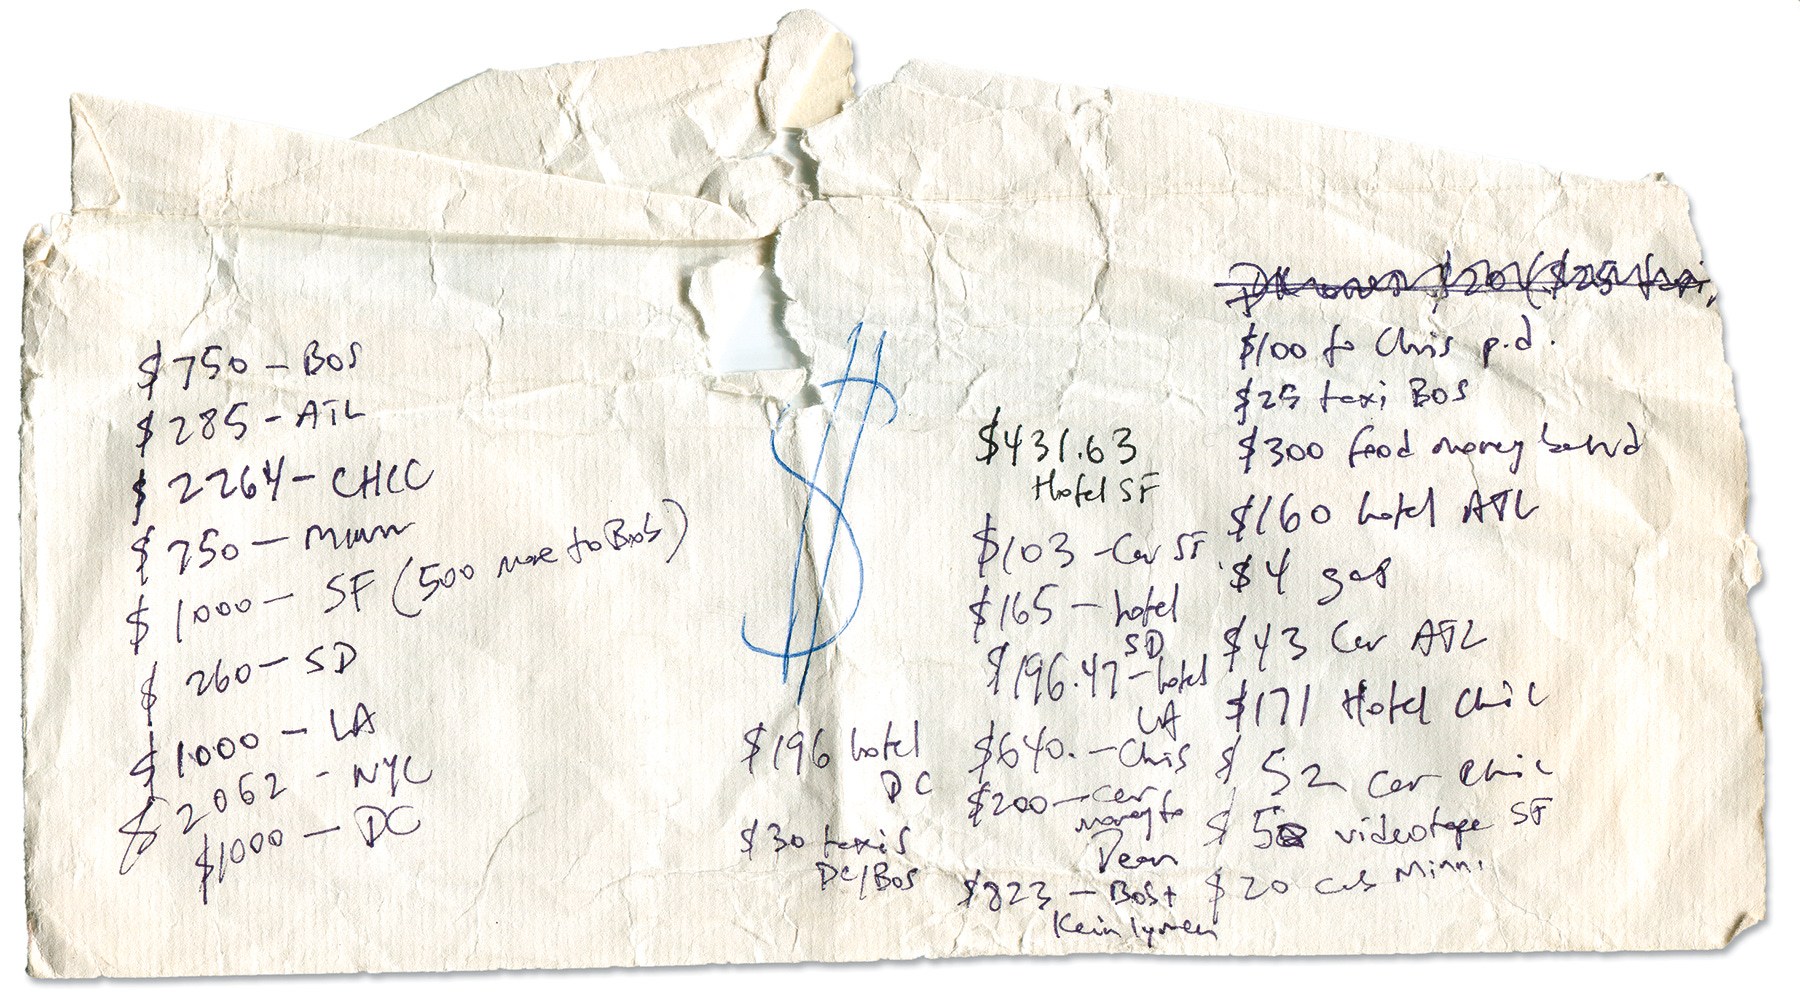 $750 - BOS
$285 - ATL
$2264 - CHCC
$750 - Minn
$1000 - SF (500 more to Bob)
$260 - SD
$1000 - LA
$2062 - NYC
$1000 - DC
$
$196 hotel
DC
$30 taxis
DC/BOS
$431.63
Hotel SF
$103 - Car SF
$165 - hotel
SD
$196.47 - hotel
LA
$640. - Chis
$200 - car
money to
Dean
$823 - BOS +
$20 ($25 taxi,
$100 to Chis p.d.
$25 taxi BOS
$300 food money band
$160 hotel ATL
$4 gas
$43 Car ATL
$171 Hotel Chic
$52 Car Chic
$5 videotape SF
$20 cab Minni